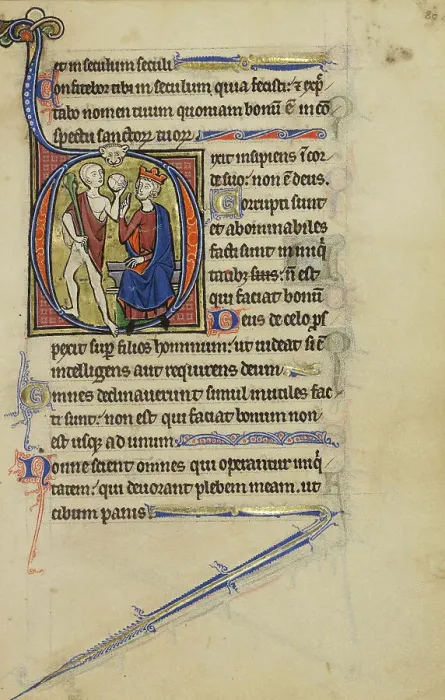 et in seculum seculi
Confitebor tibi in seculum quia fecisti: ⁊ exp̄
tabo nomen tuum quoniam bonū ē in cō
spectu sanctoꝝ tuoꝝ
Dixit insipiens ī cor
de suo: non ē deus.
Corrupti sunt
et abominabiles
facti sunt in iniq̄
tatibꝫ suis: n̄ est
qui faciat bonū
Deus de celo ꝓs
pexit suꝑ filios hominum: ut uideat si ē
intelligens aut requirens deum
Omnes declinauerunt simul inutiles fac
ti sunt: non est qui faciat bonum non
est usqꝫ ad unum
Nonne scient omnes qui operantur iniq̄
tatem: qui deuorant plebem meam. ut
cibum panis